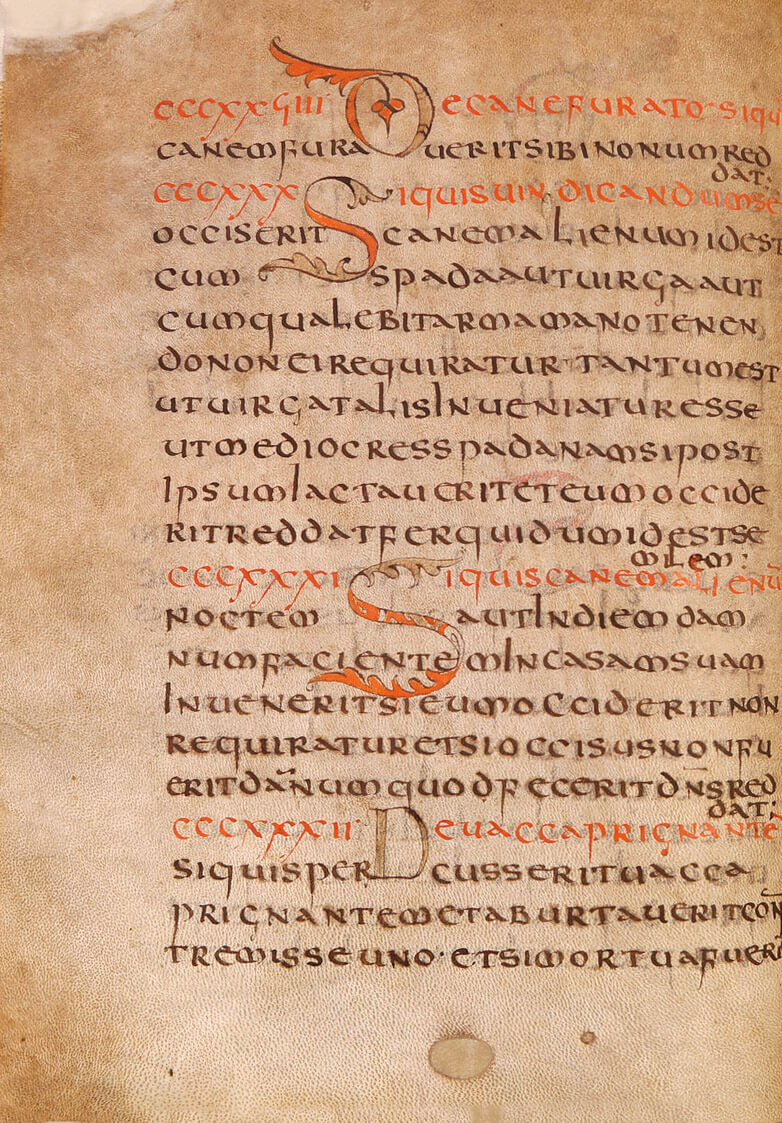 CCCXXVIIII DE CANE FURATO · SI QUI
CANEM FURAUERIT SIBI NONUM RED
DAT:
CCCXXX SI QUIS UINDICANDUM SE
OCCISERIT CANEM ALIENUM ID EST
CUM SPADA AUT UIRGA AUT
CUM QUALEBIT ARMA MANO TENEN
DO NON EI REQUIRATUR TANTUM EST
UT UIRGA TALIS INUENIATUR ESSE
UT MEDIOCRES SPADA NAM SI POST
IPSUM IACTAUERIT ET EUM OCCIDE
RIT REDDAT FERQUIDUM ID EST SE
MILEM:
CCCXXXI SI QUIS CANEM ALIENŪ
NOCTEM AUT IN DIEM DAM
NUM FACIENTEM IN CASAM SUAM
INUENERIT SI EUM OCCIDERIT NON
REQUIRATUR ET SI OCCISUS NON FU
ERIT DANNUM QUOD FECERIT DN̄S RED
DAT;
CCCXXXII DE UACCA PRIGNANTĒ
SI QUIS PERCUSSERIT UACCA
PRIGNANTEM ET ABURTAUERIT CON̄
TREMISSE UNO · ET SI MORTUA FUERI